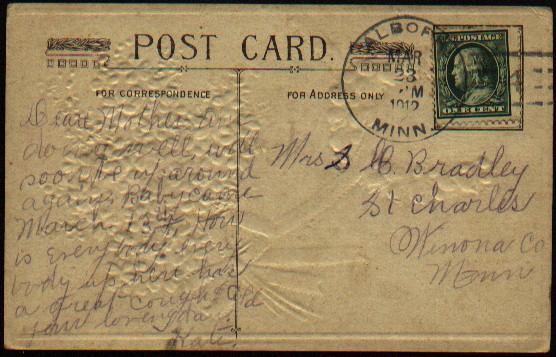 POST CARD.
FOR CORRESPONDENCE
FOR ADDRESS ONLY
MAR
23
M
1912
MINN.
U.S. POSTAGE
ONE CENT
Dear Mother, am
doing well, will
soon be up around
again, Baby came
March 13th, How
is everybody, every
body up here has
a great cough & cold
your loving dau.
Kate.
Mrs S C. Bradley
St Charles
Winona Co
Minn